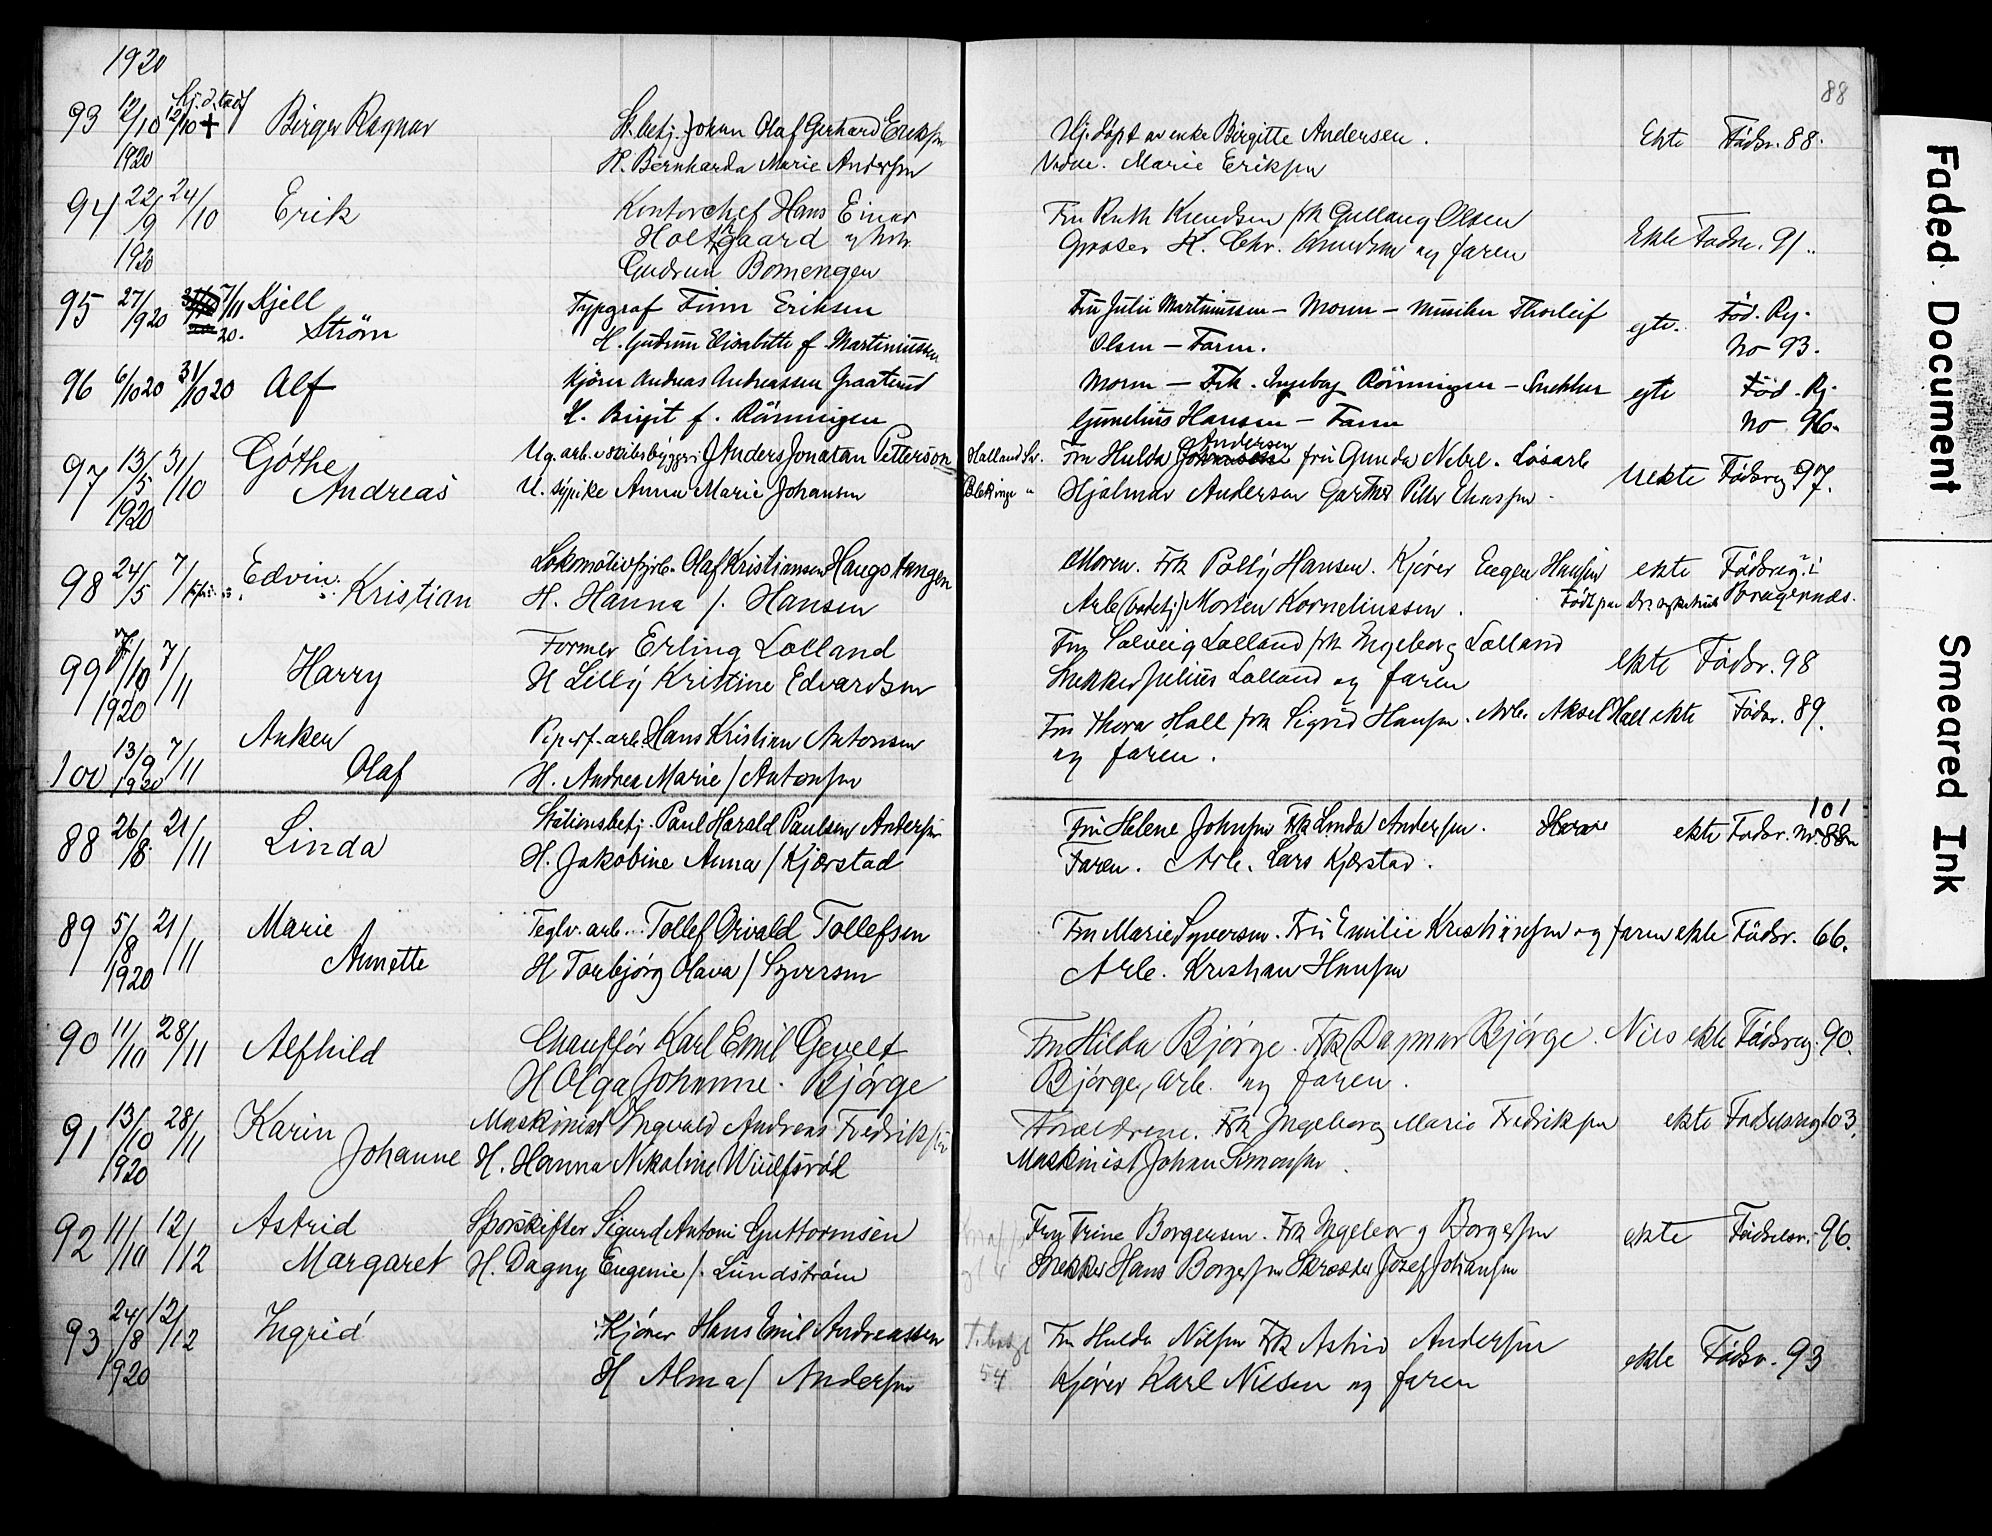 1920
88
93 12/10 12/10 + Kj. d. tauf Birger Ragnar St.betj. Johan Olaf Gerhard Eriksen Hj.døpt av enke Birgitte Andersen. Ekte Fødsr. 88.
1920 H. Bernharda Marie Andersen Vidne. Marie Eriksen
94 22/9 24/10 Erik Kontorchef Hans Einar Fru Ruth Knudsen frk Gullaug Olsen
Holtgaard og hstr Grosser K. Chr. Knudsen og faren Ekte Fødsr. 91.
1920 Gudrun Bomengen
95 27/9 20 7/11 20. Kjell Typograf Finn Eriksen Fru Julie Martinussen – Moren – Musiker Thorleif egte. Fød. Rg.
Strøm H. Gudrun Elisabethe f. Martinussen Olsen – Faren. No 93.
96 6/10 20 31/10 20 Alf Kjører Andreas Andreassen Graaterud Moren – Frk. Ingeborg Rønningen – Snekker egte Fød. Rg.
H. Birgit f. Rønningen Gunelius Hansen – Faren No 96.
97 13/5 31/10 Gøthe Ug. arb. v skibsbyggeri Anders Jonatan Petterson Halland Sv. Fru Hulda Andersen fru Gunda Nebel. Løsarb uekte Fødsreg 97.
Andreas U. sypike Anna Marie Johansen Blekinge " Hjalmar Andersen Gartner Peter Eliassen.
1920
98 24/5 7/ Edvin Lokomotivfyrb. Olaf Kristiansen Haugstangen Moren. Frk Polly Hansen. Kjører Eugen Hansen ekte Fødsreg. i
Kristian H. Hanna f. Hansen Arb. (badebetj) Morten Korneliussen. Født paa Dr. sykehus Bragernes.
99 7/10 7/11 Harry Former Erling Lolland Fru Solveig Lolland frk Ingeborg Lolland
H Lilly Kristine Edvardsen Snekker Julius Lolland og faren ekte Fødsr. 98
1920
Anker Papirf. arb. Hans Kristian Antonsen Fru Thora Hall frk Sigrid Hansen. Arb. Aksel Hall ekte Fødsr. 89.
100 13/9 7/11 1920 Olaf H. Andrea Marie f Antonsen og faren.
88 26/8 21/11 Linda Stationsbetj. Paul Harald Paulsen Andersen Fru Helene Johnsen Frk Linda Andersen. ekte Fødsr. nr. 101
H. Jakobine Anna f Kjærstad Faren. Arb. Lars Kjærstad.
89 5/8 21/11 Marie Teglv. arb. Tollef Osvald Tollefsen Fru Marie Syversen. Fru Emilie Kristiansen og faren ekte Fødsr. 66.
1920 Annette H Torbjørg Olava f Syversen Arb. Kristian Hansen
90 11/10 28/11 Alfhild Chauffør Karl Emil Gevelt Fru Hilda Bjørge. Frk Dagmar Bjørge. Nils ekte Fødsreg. 90.
H Olga Johanne. Bjørge Bjørge, arb. og faren.
91 13/10 28/11 Karin Maskinist Ingvald Andreas Fredriksen Forældrene. Frk Ingeborg Marie Fredriksen ekte Fødselsreg 103.
1920 Johanne H. Hanna Nikoline Wulfsrød Maskinist Johan Simonsen.
92 11/10 12/12 Astrid Sporskifter Sigurd Antoni Guttormsen Fru Trine Borgersen. Frk Ingeborg Borgersen ekte Fødselsr. 96.
Margaret H. Dagny Eugenie f. Lundstrøm Snekker Hans Borgersen Skrædder Josef Johansen
93 24/8 12/12 Ingrid Kjører Hans Emil Andreassen Fru Hulda Nilsen Frk Astrid Andersen ekte Fødsr. 93
1920 H Alma f Andersen 54 Kjører Karl Nilsen og faren
Faded Document
Smeared Ink